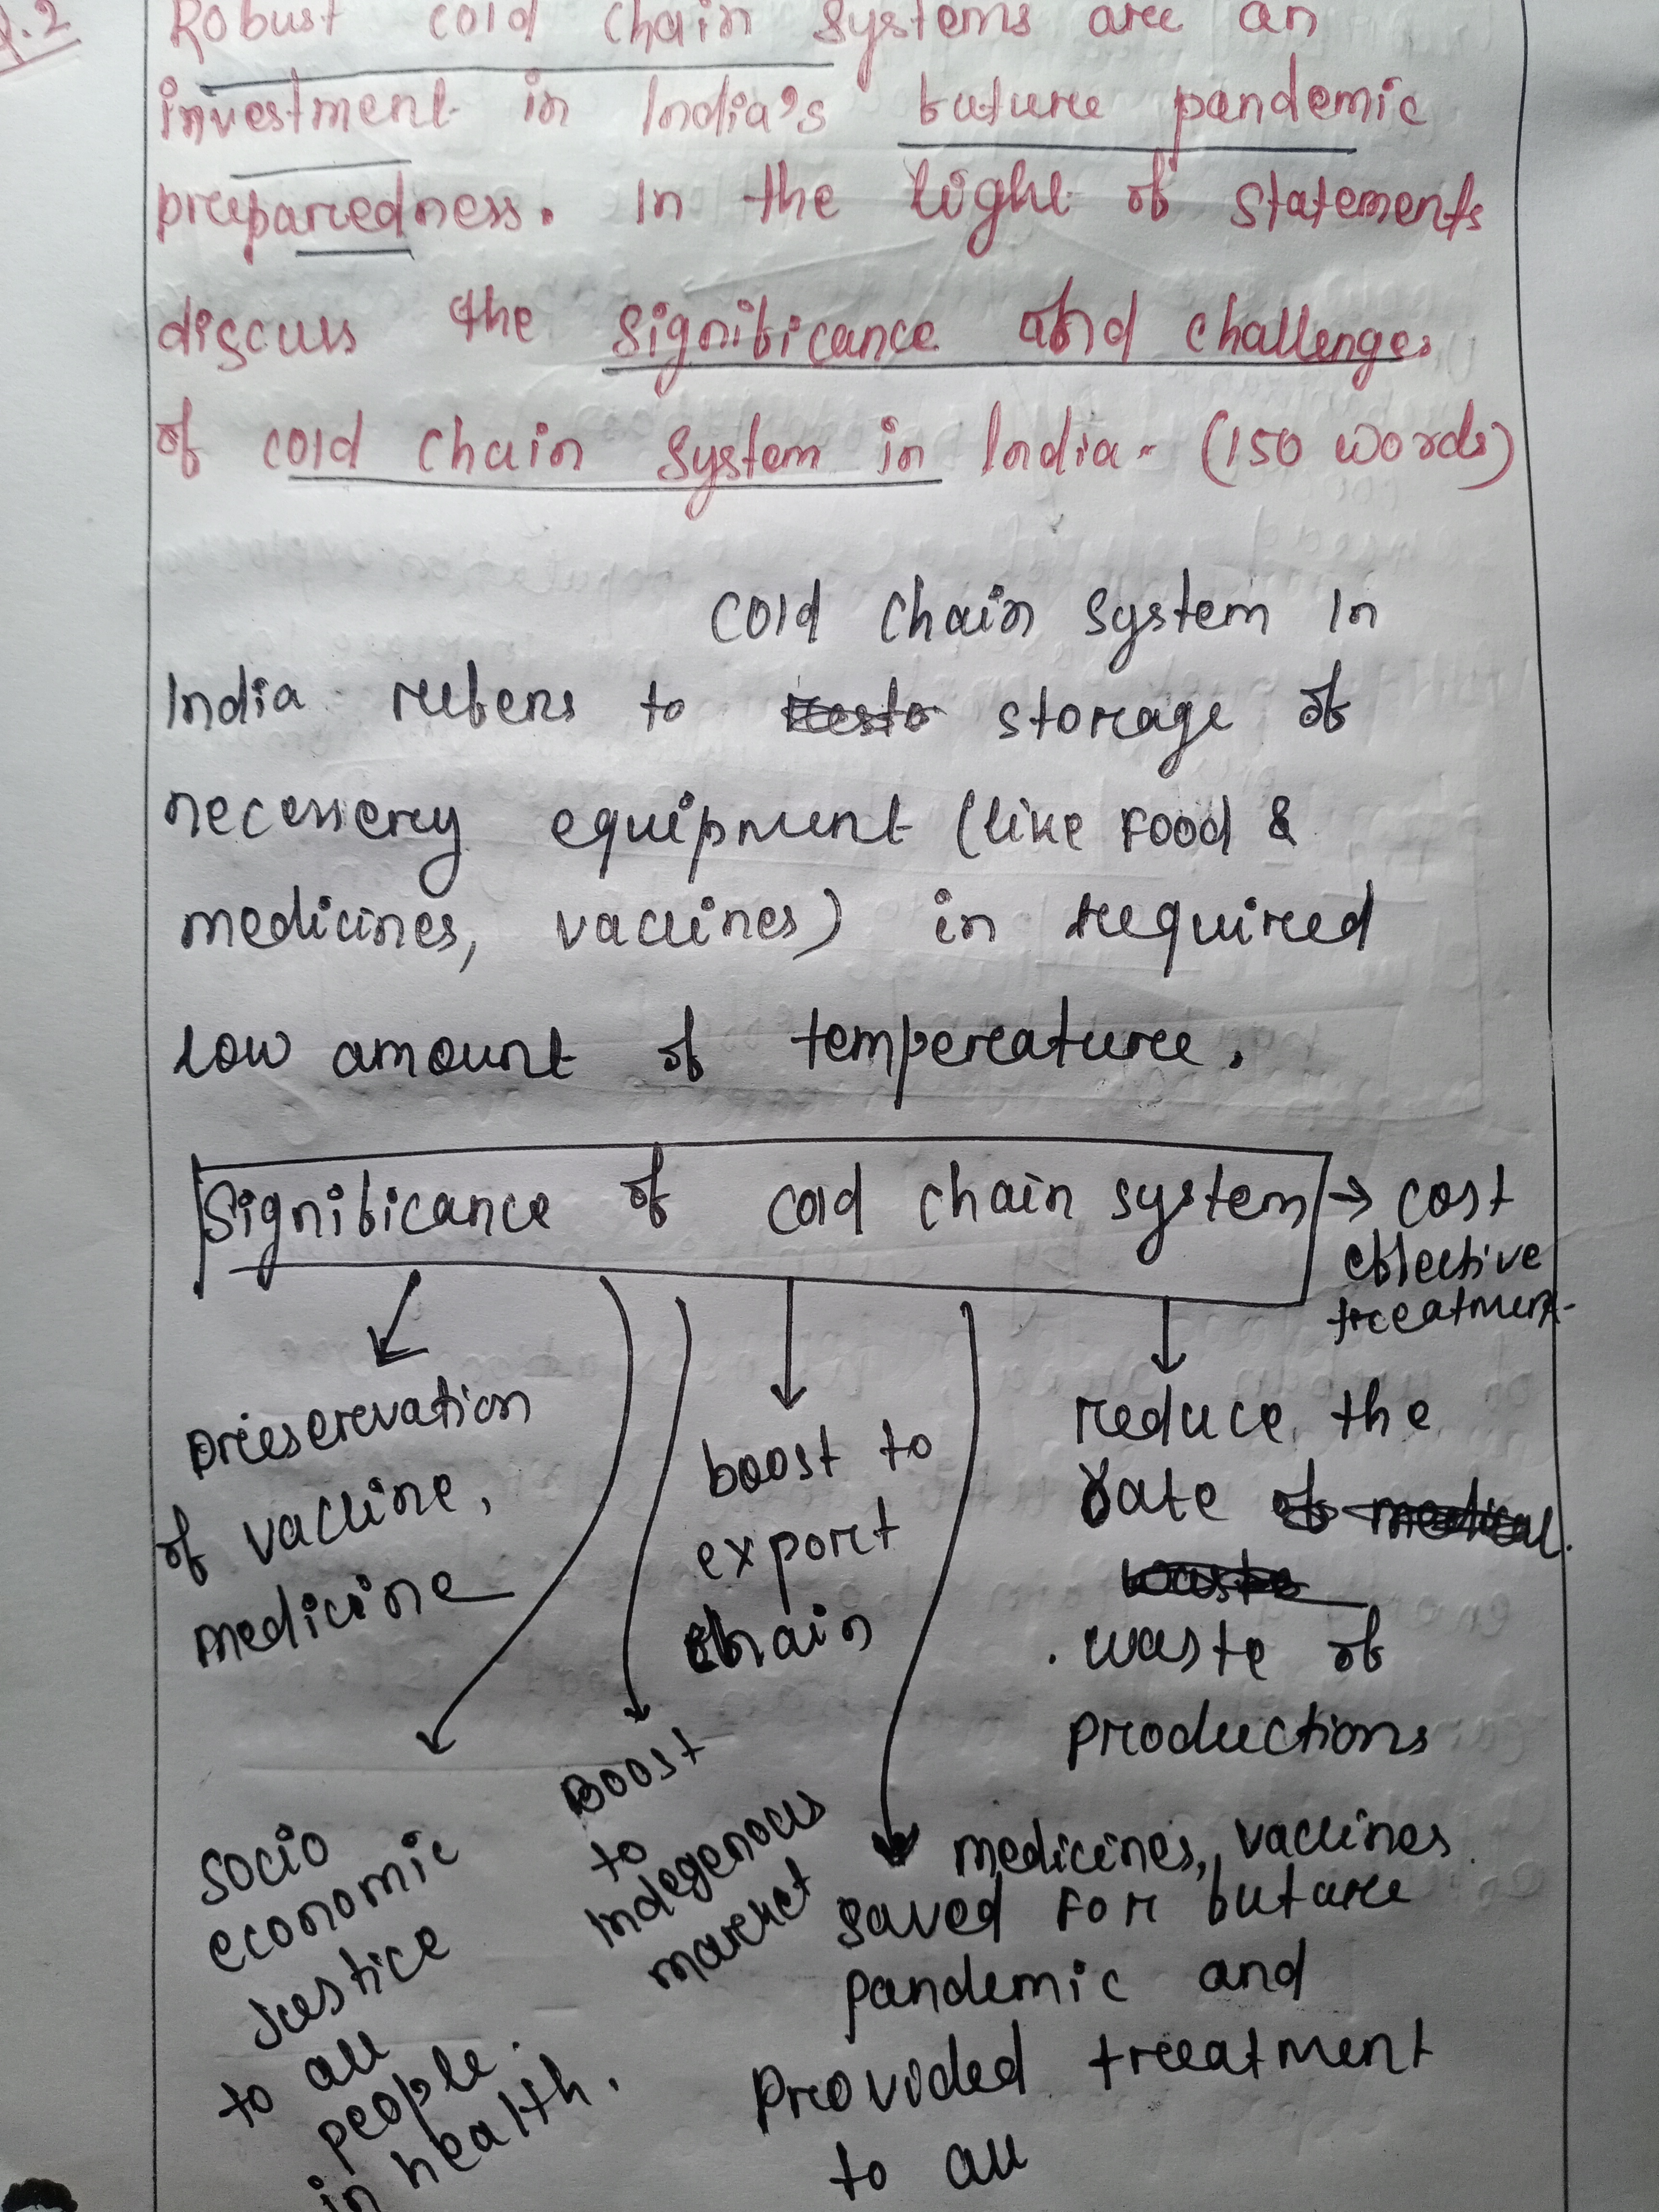 Q.2
Robust cold chain systems are an
investment in India's future pandemic
preparedness. In the light of statements
discuss the significance and challenges
of cold chain system in India - (150 words)
Cold chain system in
India refers to storage of
necessery equipment (like Food &
medicines, vaccines) in required
low amount of temperature.
Significance of cold chain system → cost
effective
treatment
preservation
of vaccine,
medicine
boost to
export
chain
reduce the
rate
waste of
productions
socio
economic
Justice
to all
people
in health.
Boost
to
Indegenous
market
medicines, vaccines
saved for future
pandemic and
provided treatment
to all